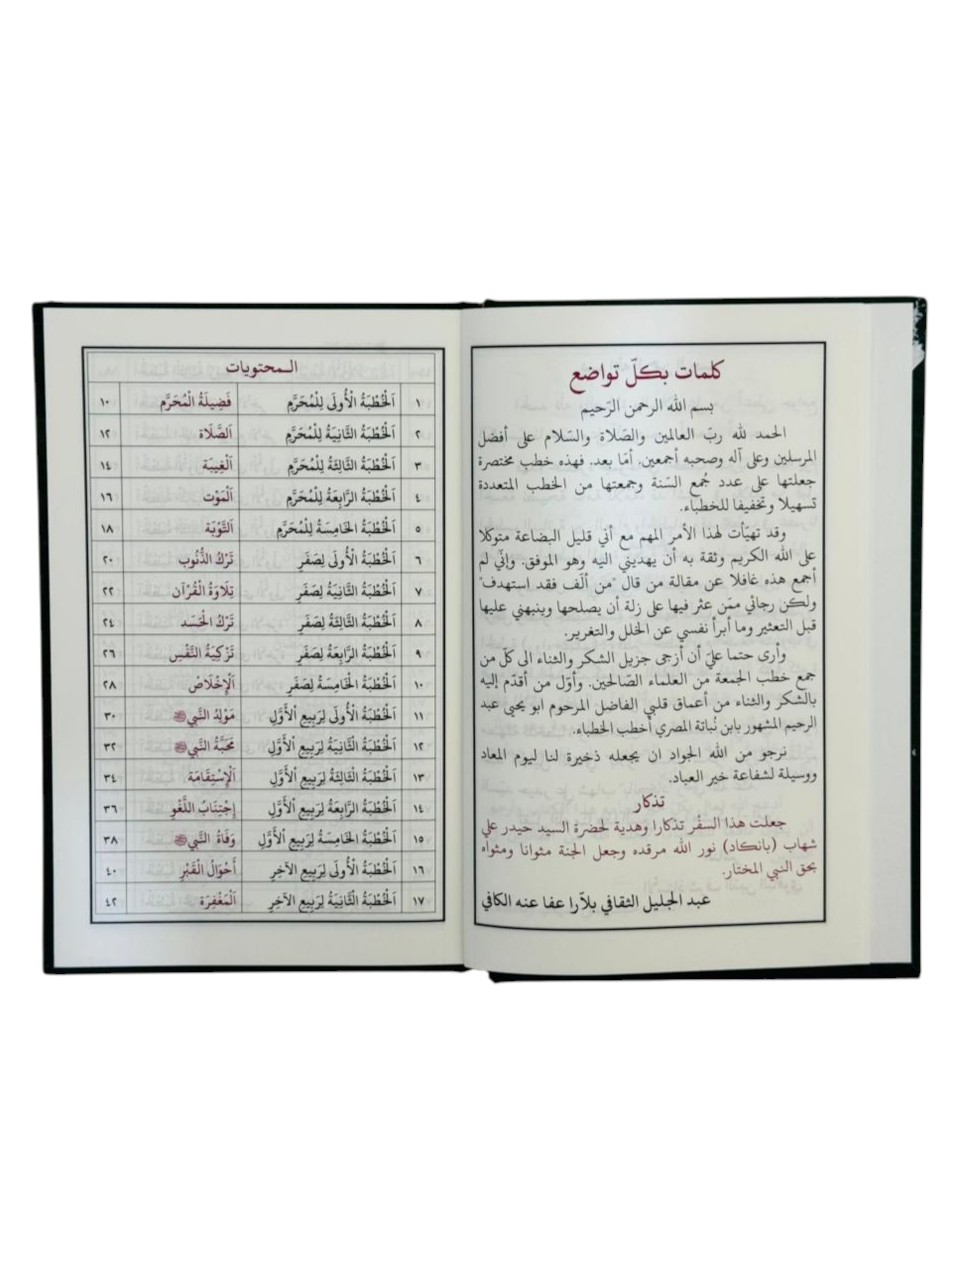 كلمات بكلّ تواضع
بسم الله الرحمن الرّحيم
الحمد لله ربّ العالمين والصّلاة والسّلام على أفضل
المرسلين وعلى آله وصحبه أجمعين. أمّا بعد. فهذه خطب مختصرة
جعلتها على عدد جُمع السّنة وجمعتها من الخطب المتعددة
تسهيلا وتخفيفا للخطباء.
وقد تهيّأت لهذا الأمر المهم مع أني قليل البضاعة متوكلا
على الله الكريم وثقة به أن يهديني اليه وهو الموفق. وإنّي لم
أجمع هذه غافلا عن مقالة من قال "من ألّف فقد استهدف"
ولكن رجائي ممّن عثر فيها على زلة أن يصلحها وينبهني عليها
قبل التعثير وما أبرأ نفسي عن الخلل والتغرير.
وأرى حتما عليّ أن أزجى جزيل الشكر والثناء الى كلّ من
جمع خطب الجمعة من العلماء الصّالحين. وأوّل من أقدّم إليه
بالشكر والثناء من أعماق قلبي الفاضل المرحوم ابو يحيى عبد
الرحيم المشهور بابن نُباتة المصري أخطب الخطباء.
نرجو من الله الجواد ان يجعله ذخيرة لنا ليوم المعاد
ووسيلة لشفاعة خير العباد.
تذكار
جعلت هذا السفْر تذكارا وهدية لحضرة السيد حيدر علي
شهاب (بانكاد) نور الله مرقده وجعل الجنة مثوانا ومثواه
بحق النبي المختار.
عبد الجليل الثقافي بلاّرا عفا عنه الكافي
الـمحتويات
١ اَلْخُطْبَةُ الْأُولَى لِلْمُحَرَّمِ فَضِيلَةُ الْمُحَرَّم ١٠
٢ اَلْخُطْبَةُ الثَّانِيَةُ لِلْمُحَرَّمِ اَلصَّلَاة ١٢
٣ اَلْخُطْبَةُ الثَّالِثَةُ لِلْمُحَرَّمِ اَلْغِيبَة ١٤
٤ اَلْخُطْبَةُ الرَّابِعَةُ لِلْمُحَرَّمِ اَلْمَوْت ١٦
٥ اَلْخُطْبَةُ الْخَامِسَةُ لِلْمُحَرَّمِ اَلتَّوْبَة ١٨
٦ اَلْخُطْبَةُ الْأُولَى لِصَفَرِ تَرْكُ الذُّنُوب ٢٠
٧ اَلْخُطْبَةُ الثَّانِيَةُ لِصَفَرِ تِلَاوَةُ الْقُرْآن ٢٢
٨ اَلْخُطْبَةُ الثَّالِثَةُ لِصَفَرِ تَرْكُ الْحَسَد ٢٤
٩ اَلْخُطْبَةُ الرَّابِعَةُ لِصَفَرِ تَزْكِيَةُ النَّفْسِ ٢٦
١٠ اَلْخُطْبَةُ الْخَامِسَةُ لِصَفَرِ اَلْإِخْلَاصُ ٢٨
١١ اَلْخُطْبَةُ الْأُولَى لِرَبِيعِ الْأَوَّلِ مَوْلِدُ النَّبِي ﷺ ٣٠
١٢ اَلْخُطْبَةُ الثَّانِيَةُ لِرَبِيعِ الْأَوَّلِ مَحَبَّةُ النَّبِي ﷺ ٣٢
١٣ اَلْخُطْبَةُ الثَّالِثَةُ لِرَبِيعِ الْأَوَّلِ اَلْإِسْتِقَامَة ٣٤
١٤ اَلْخُطْبَةُ الرَّابِعَةُ لِرَبِيعِ الْأَوَّلِ إِجْتِنَابُ اللَّغْوِ ٣٦
١٥ اَلْخُطْبَةُ الْخَامِسَةُ لِرَبِيعِ الْأَوَّلِ وَفَاةُ النَّبِي ﷺ ٣٨
١٦ اَلْخُطْبَةُ الْأُولَى لِرَبِيعِ الآخِرِ أَحْوَالُ الْقَبْرِ ٤٠
١٧ اَلْخُطْبَةُ الثَّانِيَةُ لِرَبِيعِ الآخِرِ اَلْمَغْفِرَة ٤٢